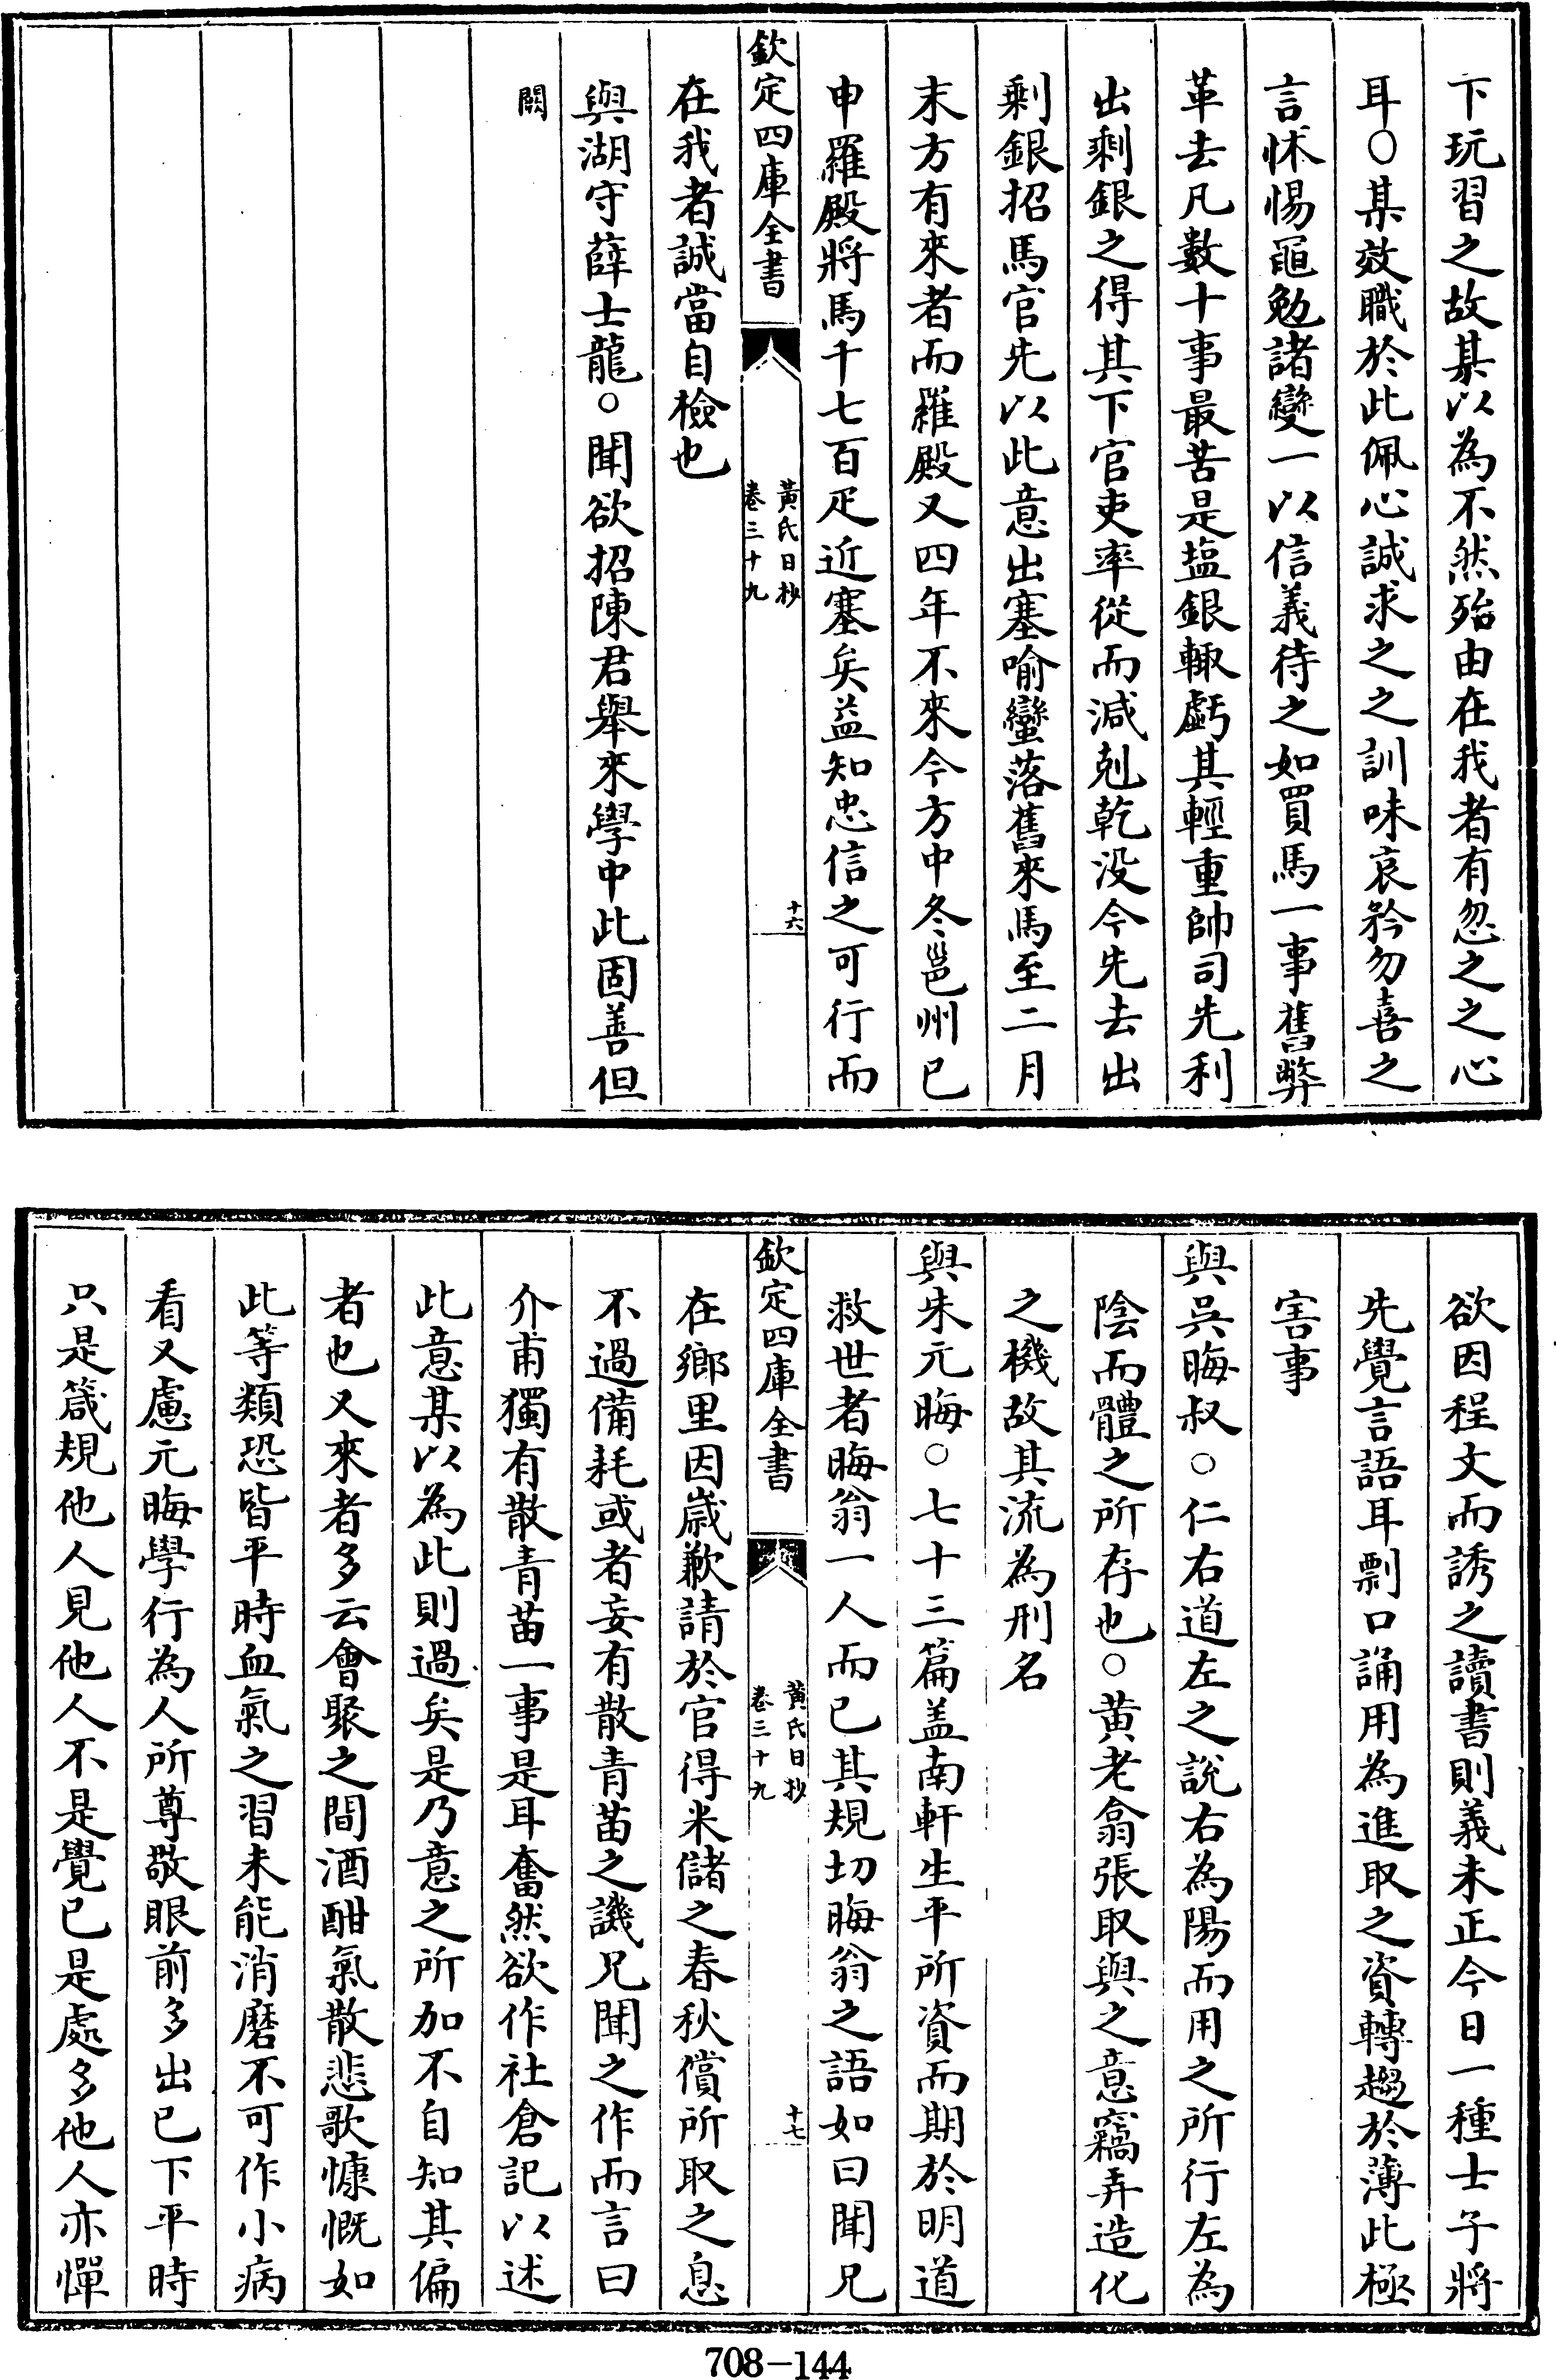 下玩習之故某以為不然殆由在我者有忽之之心
耳○某效職於此佩心誠求之之訓味哀矜勿喜之
言怵惕黽勉諸變一以信義待之如買馬一事舊弊
革去凡數十事最苦是塩銀輙虧其輕重帥司先利
出剩銀之得其下官吏率從而減剋乾没今先去出
剩銀招馬官先以此意出塞喻蠻落舊來馬至二月
末方有來者而羅殿又四年不來今方中冬邕州已
申羅殿將馬千七百疋近塞矣益知忠信之可行而
欽定四庫全書
黃氏日抄
卷三十九
十六
在我者誠當自檢也
與湖守薛士龍○聞欲招陳君舉來學中此固善但
闕
欲因程文而誘之讀書則義未正今日一種士子將
先覺言語耳剽口誦用為進取之資轉趨於薄此極
害事
與吳晦叔○仁右道左之說右為陽而用之所行左為
陰而體之所存也○黄老翕張取與之意竊弄造化
之機故其流為刑名
與朱元晦○七十三篇盖南軒生平所資而期於明道
救世者晦翁一人而已其規切晦翁之語如曰聞兄
欽定四庫全書
黃氏日抄
卷三十九
十七
在鄉里因歲歉請於官得米儲之春秋償所取之息
不過備耗或者妄有散青苗之譏兄聞之作而言曰
介甫獨有散青苗一事是耳奮然欲作社倉記以述
此意某以為此則過矣是乃意之所加不自知其偏
者也又來者多云會聚之間酒酣氣散悲歌慷慨如
此等類恐皆平時血氣之習未能消磨不可作小病
看又慮元晦學行為人所尊敬眼前多出已下平時
只是箴規他人見他人不是覺已是處多他人亦憚
708-144